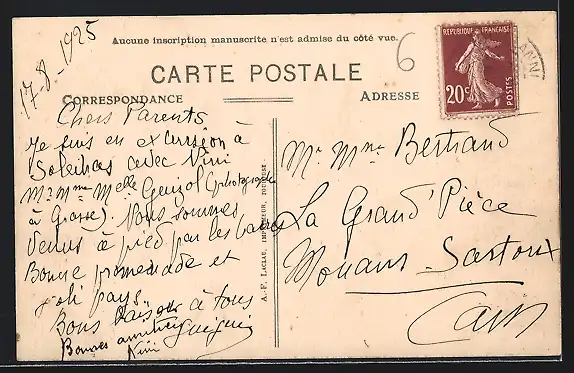 17-8-1925
Aucune inscription manuscrite n'est admise du côté vue.
6
CARTE POSTALE
CORRESPONDANCE
ADRESSE
RÉPUBLIQUE FRANÇAISE
20c
POSTES
ANNI
Chers Parents
Je suis en excursion à
Soleilhas avec Nini
Mr Mme Melle Guizol (photographe
à Grasse). Nous sommes
venus à pied par les
Bonne promenade et
joli pays.
Bons Baisers à tous
Bonnes amitiés
Nini
A.-F. LACLAU, IMPRIMEUR, TOULOUSE.
Mr Mme Bertrand
La Grand'Pièce
Mouans-Sartoux